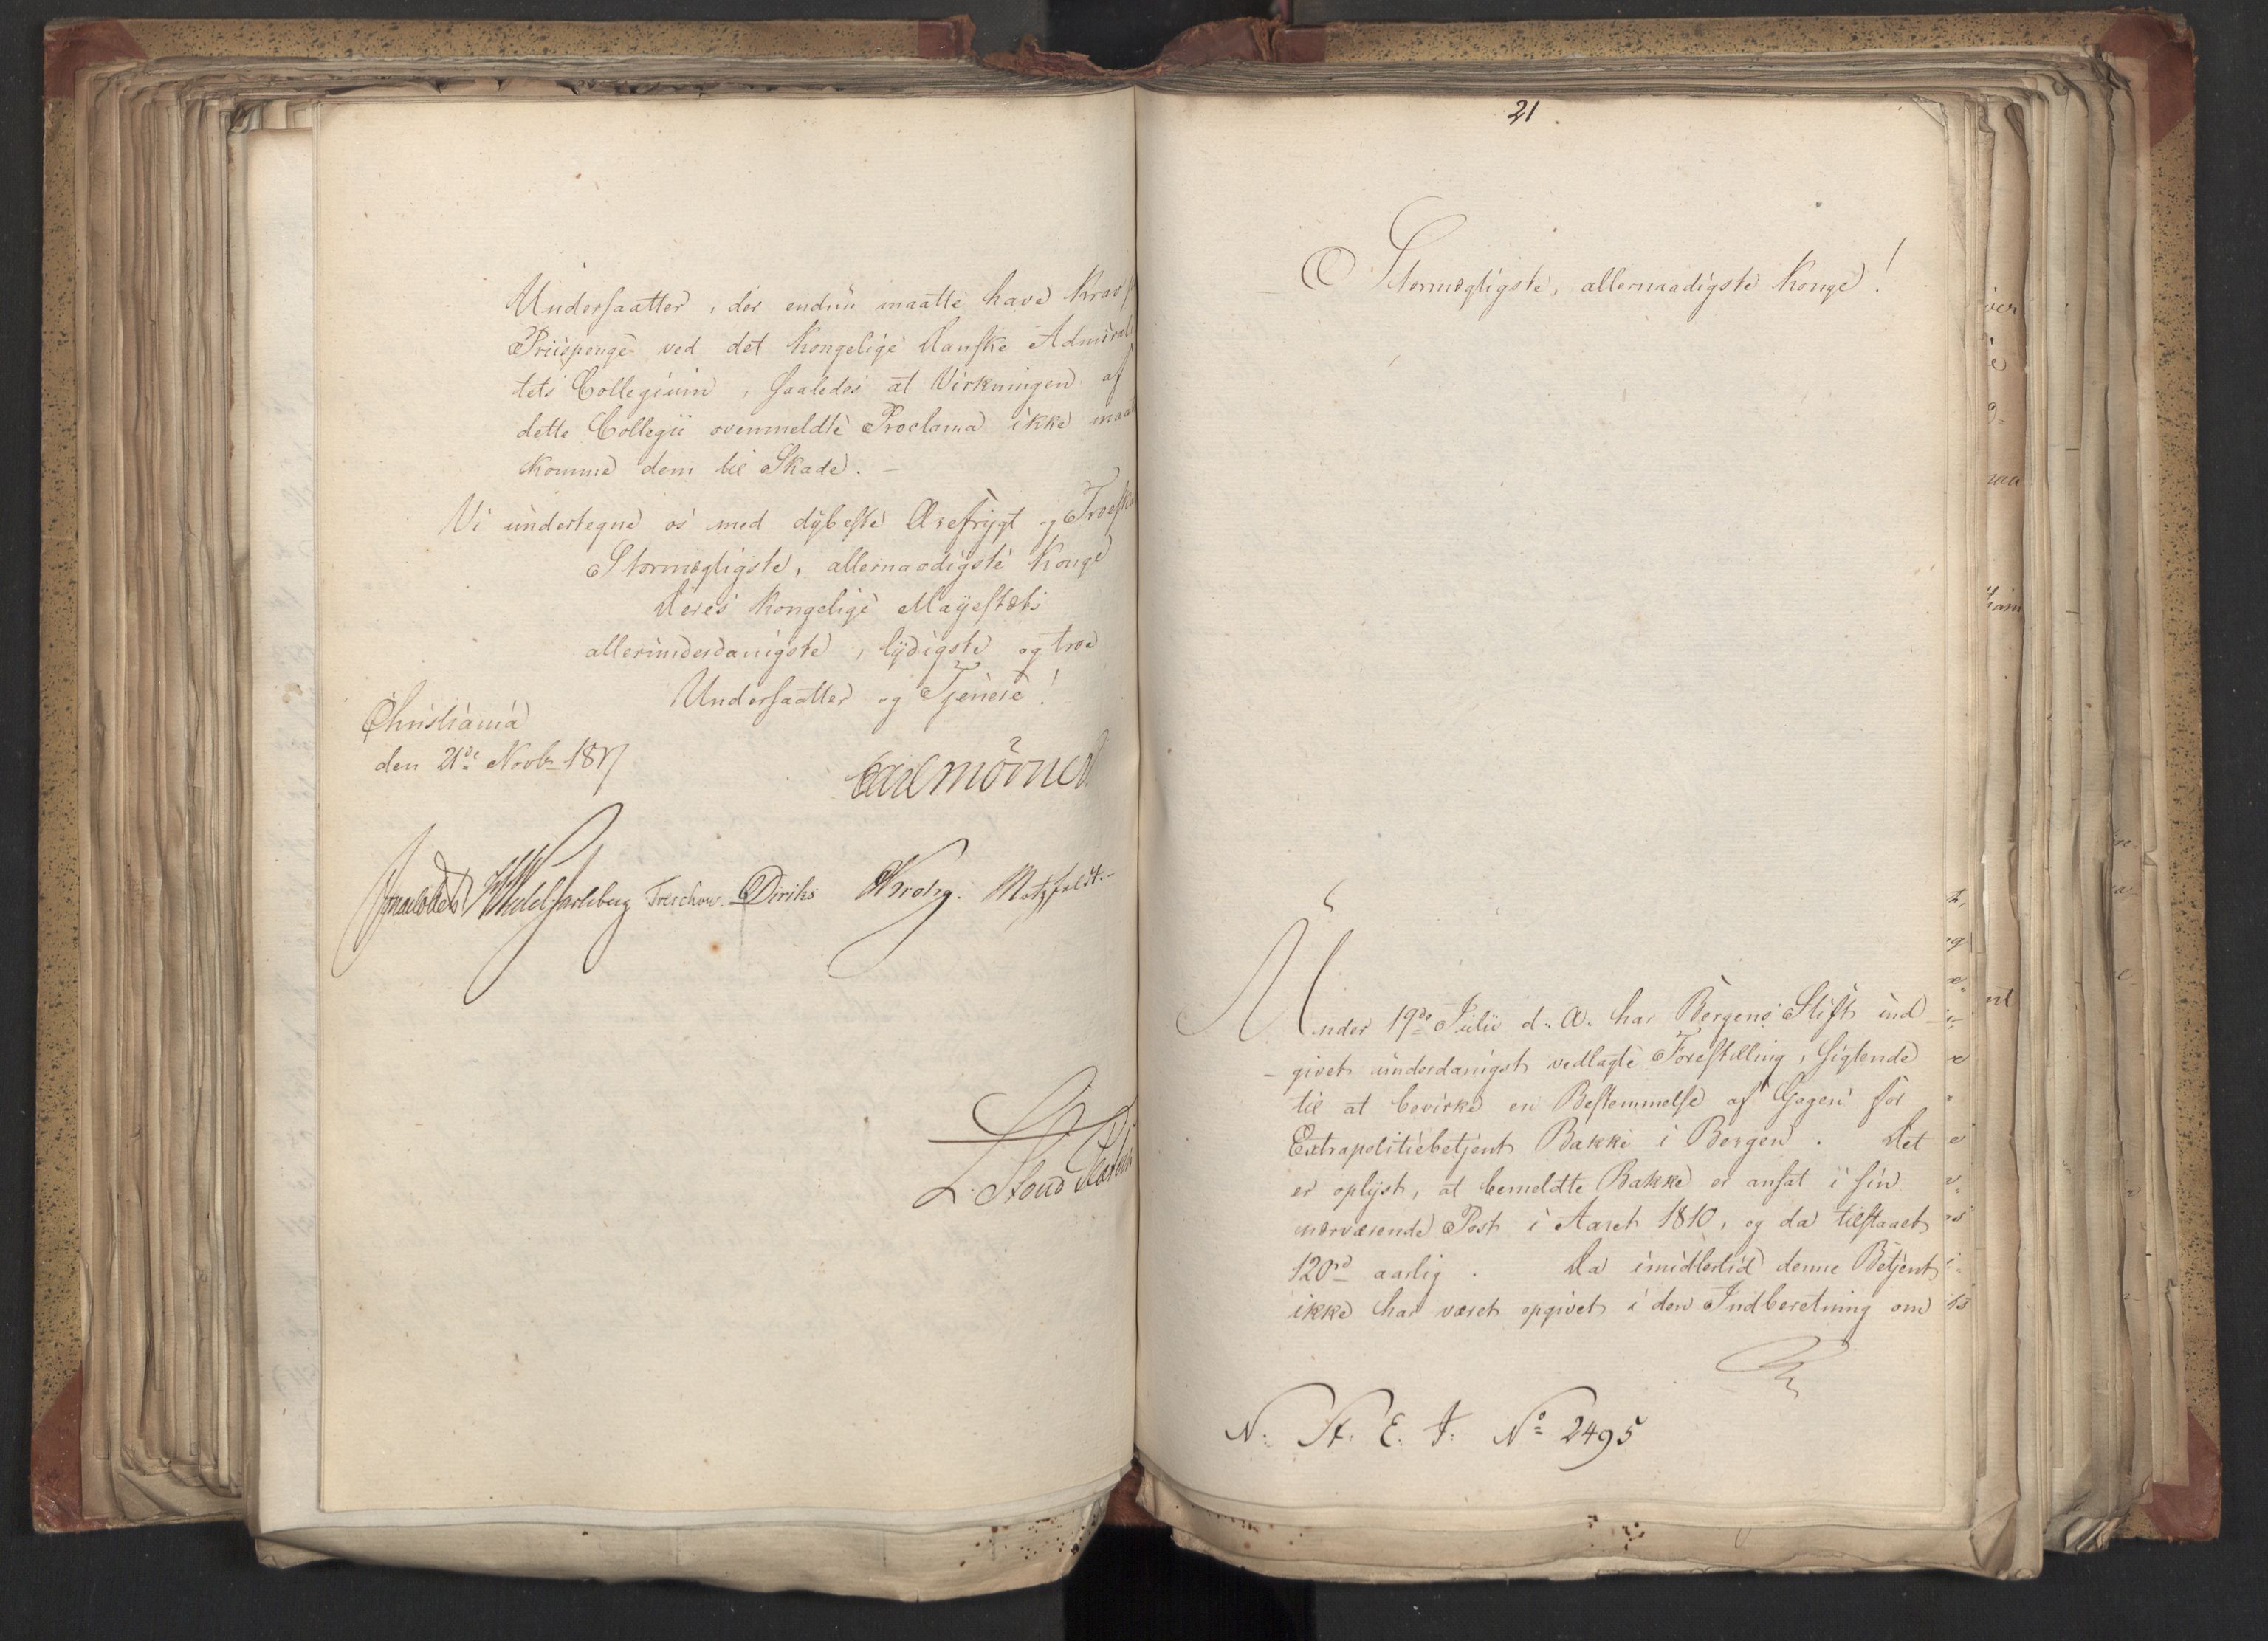 Undersaatter, der endnu maatte have Krav
Priispenge ved det Kongelige Danske Admiral
tets Collegium, saaledes at Virkningen af
dette Collegii ovenmeldte Proclama ikke maa
komme dem til Skade. –
Vi undertegne os med dybeste Ærefrygt og Troesk
Stormægtigste, allernaadigste Konge
Deres Kongelige Mayestæts
allerunderdanigste, lydigste og troe
Undersaatter og Tjenere!
Christiania
den 21de Novbr 1817
Carl Mörner
Wedel Jarlsberg Treschow. Diriks Krohg. Motzfeldt.
L. Stoud Platou
21.
Stormægtigste, allernaadigste Konge!
Under 19de Julii d: A: har Bergens Stift ind
– givet underdanigst vedlagte Forestilling, sigtende
til at bevirke en Bestemmelse af Gagen for
Extrapolitiebetjent Bakke i Bergen. Det
er oplyst, at bemeldte Bakke er ansat i sin
nærværende Post i Aaret 1810, og da tilstaaet
120rd aarlig. Da imidlertid denne Betjent
ikke har været opgivet i den Indberetning om
N: A. E. J: No 2495